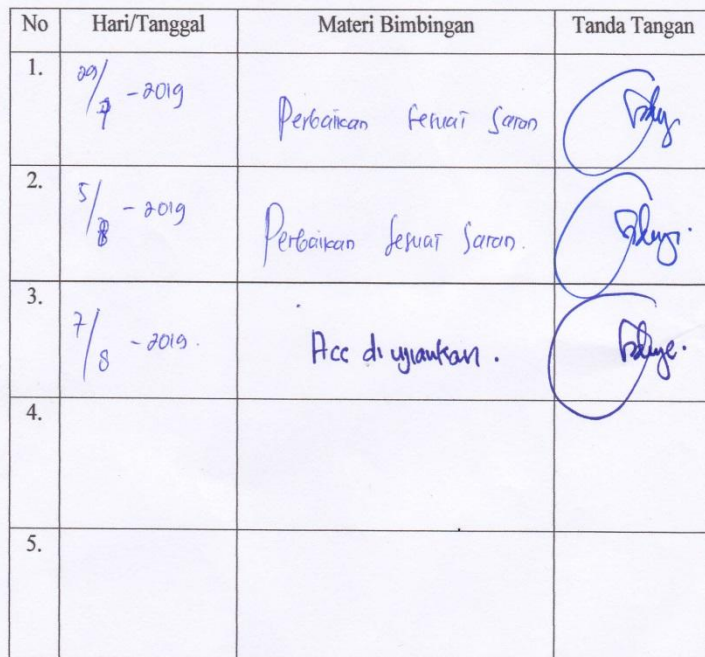 No Hari/Tanggal Materi Bimbingan Tanda Tangan
1. 29/7 - 2019 Perbaikan sesuai saran
2. 5/8 - 2019 Perbaikan sesuai saran.
3. 7/8 - 2019. Acc di ujiankan.
4.
5.